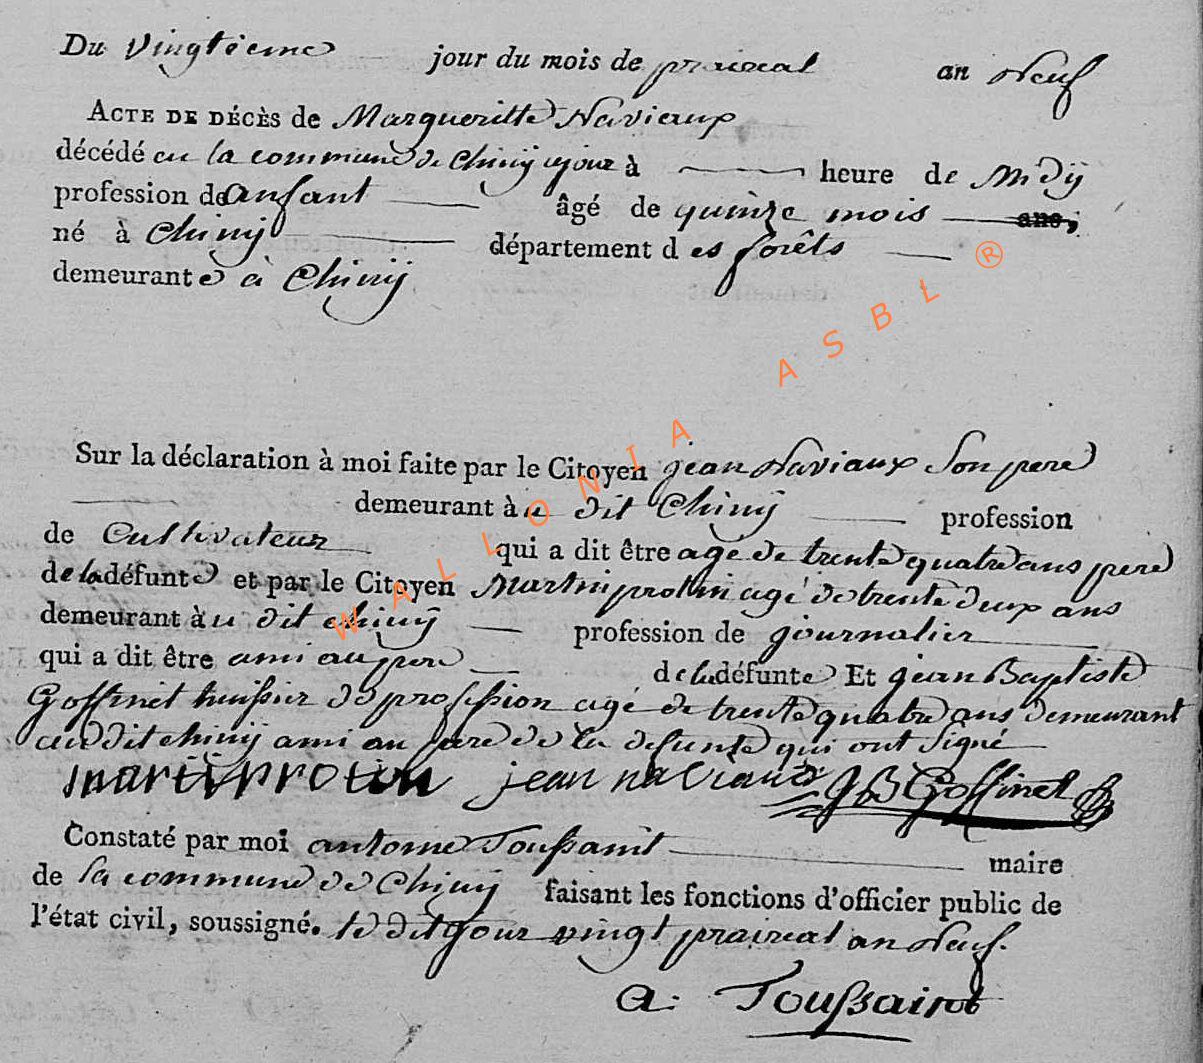 Du vingtieme jour du mois de praireal an Neuf
ACTE DE DÉCÈS de Margueritte Naviaux
décédé en la commune de Chinÿ cejour à heure de Midÿ
profession de anfant âgé de quinze mois ans,
né à Chinÿ département des forêts
demeurante à Chinÿ
Sur la déclaration à moi faite par le Citoyen jean Naviaux Son pere
demeurant àu dit Chinÿ profession
de Cultivateur qui a dit être agé de trente quatre ans pere
de la défunte et par le Citoyen Martin protin agé de trente deux ans
demeurant àu dit chinÿ profession de journalier
qui a dit être ami au pere de la défunte Et jean Baptiste
Goffinet huissier de profession agé de trente quatre ans demeurant
audit chinÿ ami au pere de la defunte qui ont signé
martin protin jean naviaux JB Goffinet
Constaté par moi antoine Toussaint maire
de la commune de Chinÿ faisant les fonctions d'officier public de
l'état civil, soussigné. le dit jour vingt praireal an Neuf.
a. Toussaint
WALLONIA ASBL ®